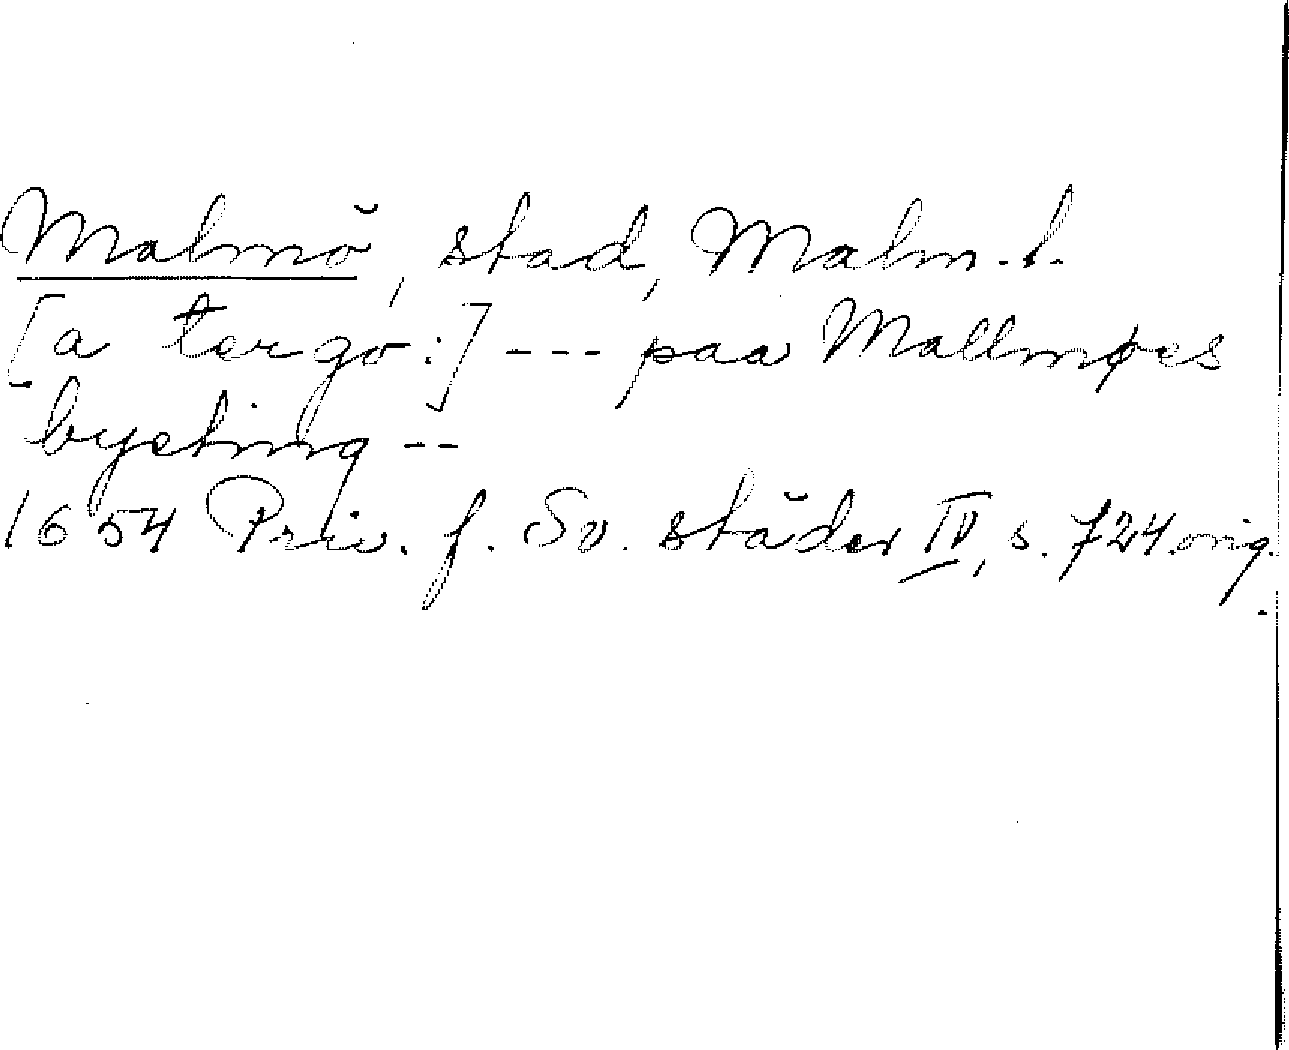 Malmö, stad, Malm. l.
[a tergo:] --- paa Mallmøes
byeting --
1654 Priv. f. Sv. städer IV, s. 724. orig.